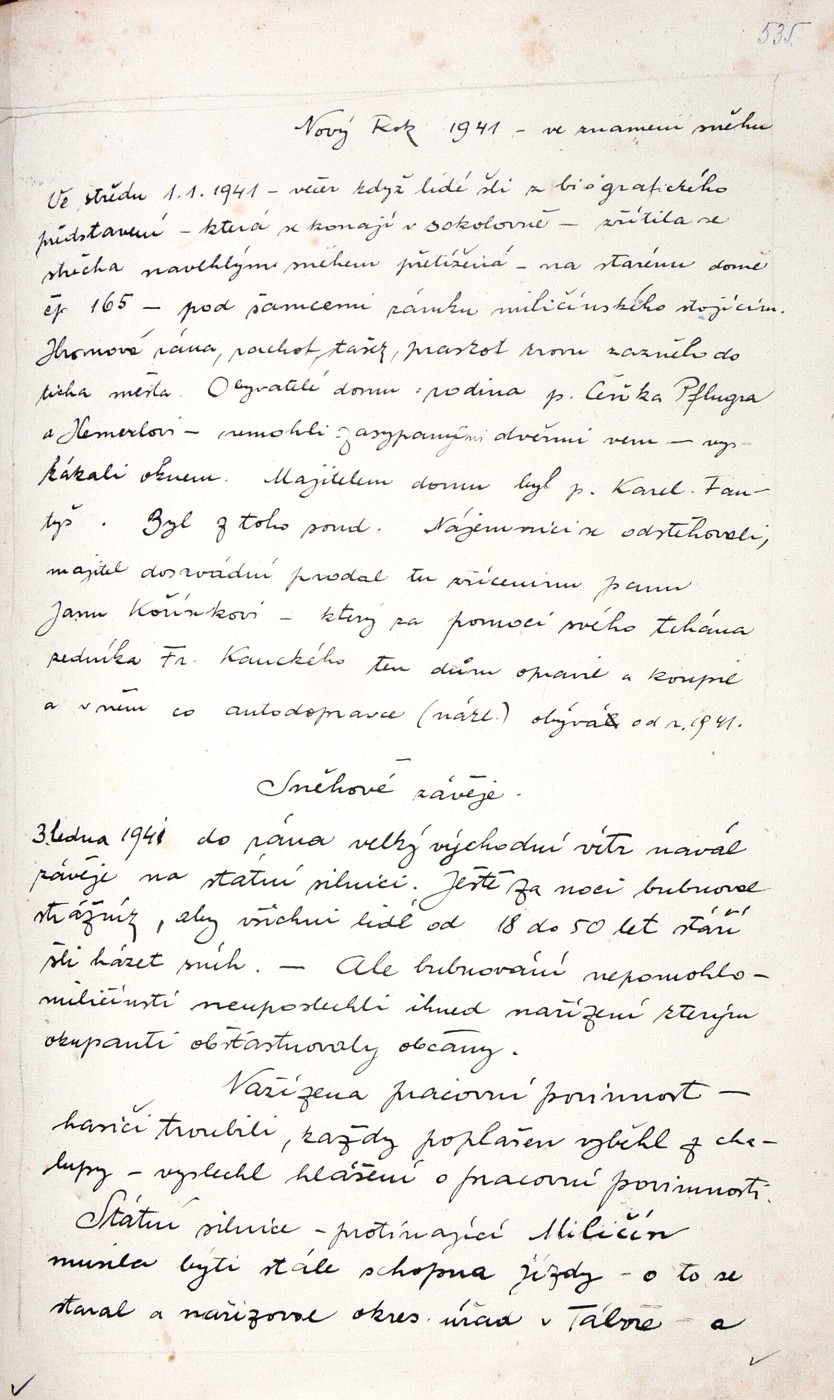 535.
Nový Rok 1941 – ve znamení sněhu
Ve středu 1.1.1941 – večer když lidé šli z biografického
představení – která se konají v sokolovně – zřítila se
střecha navehlým sněhem přetížená – na starém domě
čp 165 – pod šancemi zámku miličínského stojícím.
Hromová rána, rachot tašek, praskot krovu zazněl do
ticha města. Obyvatelé domu: rodina p. Čeňka Pflugra
a Hemerlovi – nemohli zasypanými dveřmi ven – vys-
kákali oknem. Majitelem domu byl p. Karel Fan-
tyš. Byl z toho soud. Nájemníci se odstěhovali,
majitel dosavádní prodal tu zříceninu panu
Janu Kořínkovi – který za pomoci svého tchána
zedníka Fr. Kauckého ten dům opravil a koupil
a v něm co autodopravce (nákl.) obývá od r. 1941.
Sněhové závěje.
3. ledna 1941 do rána velký východní vítr navál
závěje na státní silnici. Ještě za noci bubnoval
strážník, aby všichni lidé od 18 do 50 let stáří
šli házet sníh. – Ale bubnování nepomohlo –
miličínstí neuposlechli ihned nařízení kterým
okupanti obšťastňovaly občany.
Nařízena pracovní povinnost –
hasiči troubili, každy poplašen vyběhl z cha-
lupy – vyslechl hlášení o pracovní povinnosti.
Státní silnice – protínající Miličín
musila býti stále schopna jízdy – o to se
staral a nařizoval okres. úřad v Táboře – a